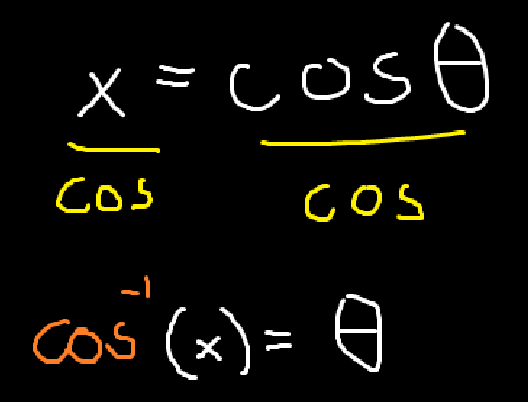 x = cos θ
cos cos
cos⁻¹(x) = θ